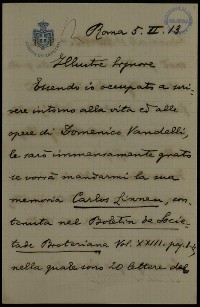 Roma 5. II. 13
Illustre Signore
Essendo io occupato a scri=
vere intorno alla vita ed alle
opere di Domenico Vandelli,
le sarò immensamente grato
se vorrà mandarmi la sua
memoria Carlos Linneu, con=
tenuta nel Boletin da Socie=
tade Broteriana Vol. XXIII. pag.
nella quale sono 20 lettere del